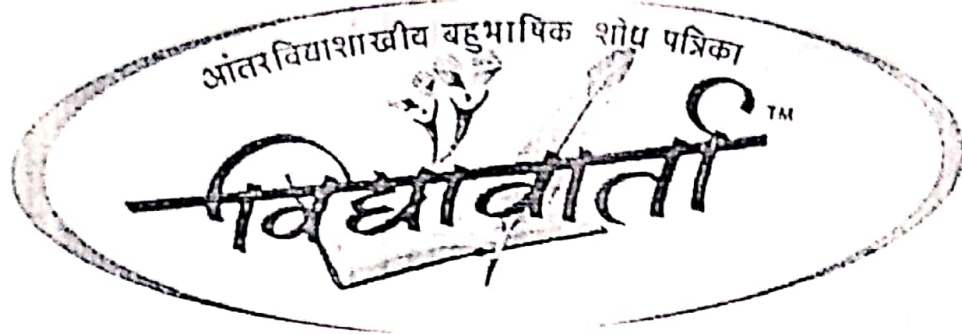 आंतरविद्याशाखीय बहुभाषिक शोध पत्रिका
विद्यावार्ता™